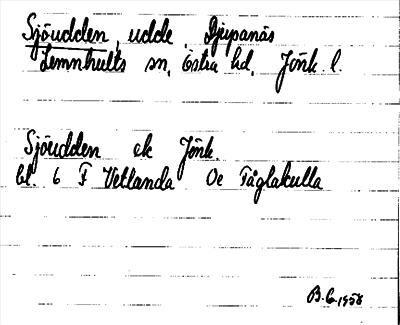 Sjöudden, udde, Djupanäs
Lemnhults sn, Östra hd, Jönk. l.
Sjöudden ek Jönk.
bl. 6 F Vetlanda Oe Fåglakulla
B.G. 1958